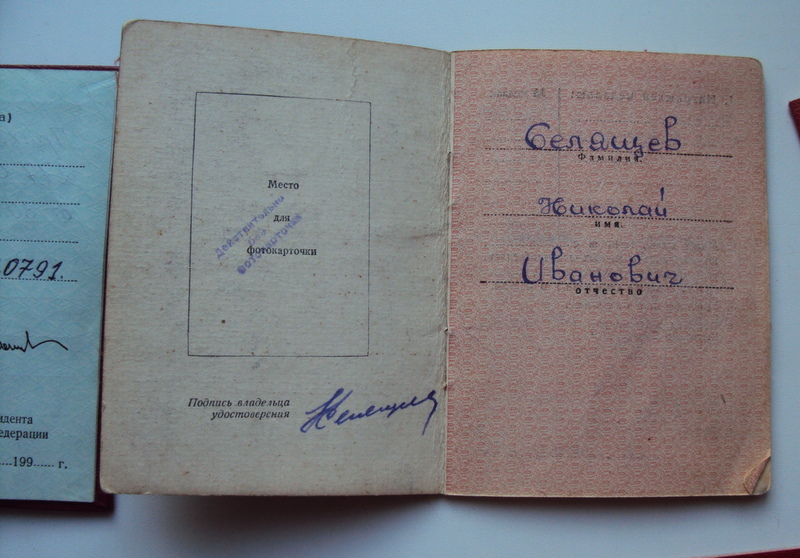 а)
0791.
идента
едерации
199 г.
Место
для
фотокарточки
Действительно
без
фотокарточки
Подпись владельца
удостоверения
Белящев
Фамилия
Николай
имя
Иванович
отчество